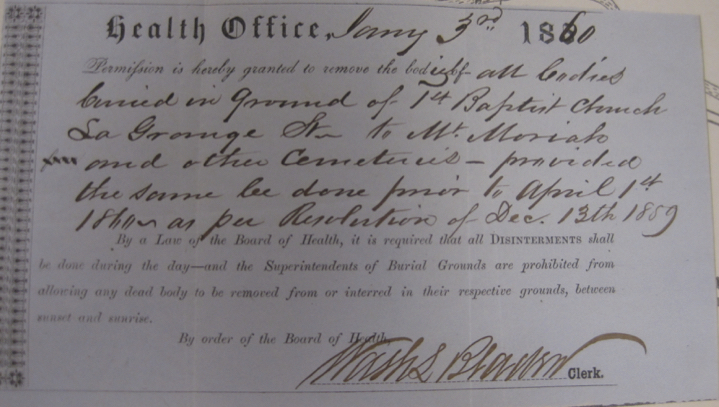 Health Office, Jany 3rd 1860
Permission is hereby granted to remove the bodies of all bodies
buried in Ground of 1st Baptist Church
La Grange St to Mt. Moriah
and other Cemeteries – provided
the same be done prior to April 1st
1860 as per Resolution of Dec. 13th 1859
By a Law of the Board of Health, it is required that all DISINTERMENTS shall
be done during the day—and the Superintendents of Burial Grounds are prohibited from
allowing any dead body to be removed from or interred in their respective grounds, between
sunset and sunrise.
By order of the Board of Health,
Wash L Bladen Clerk.